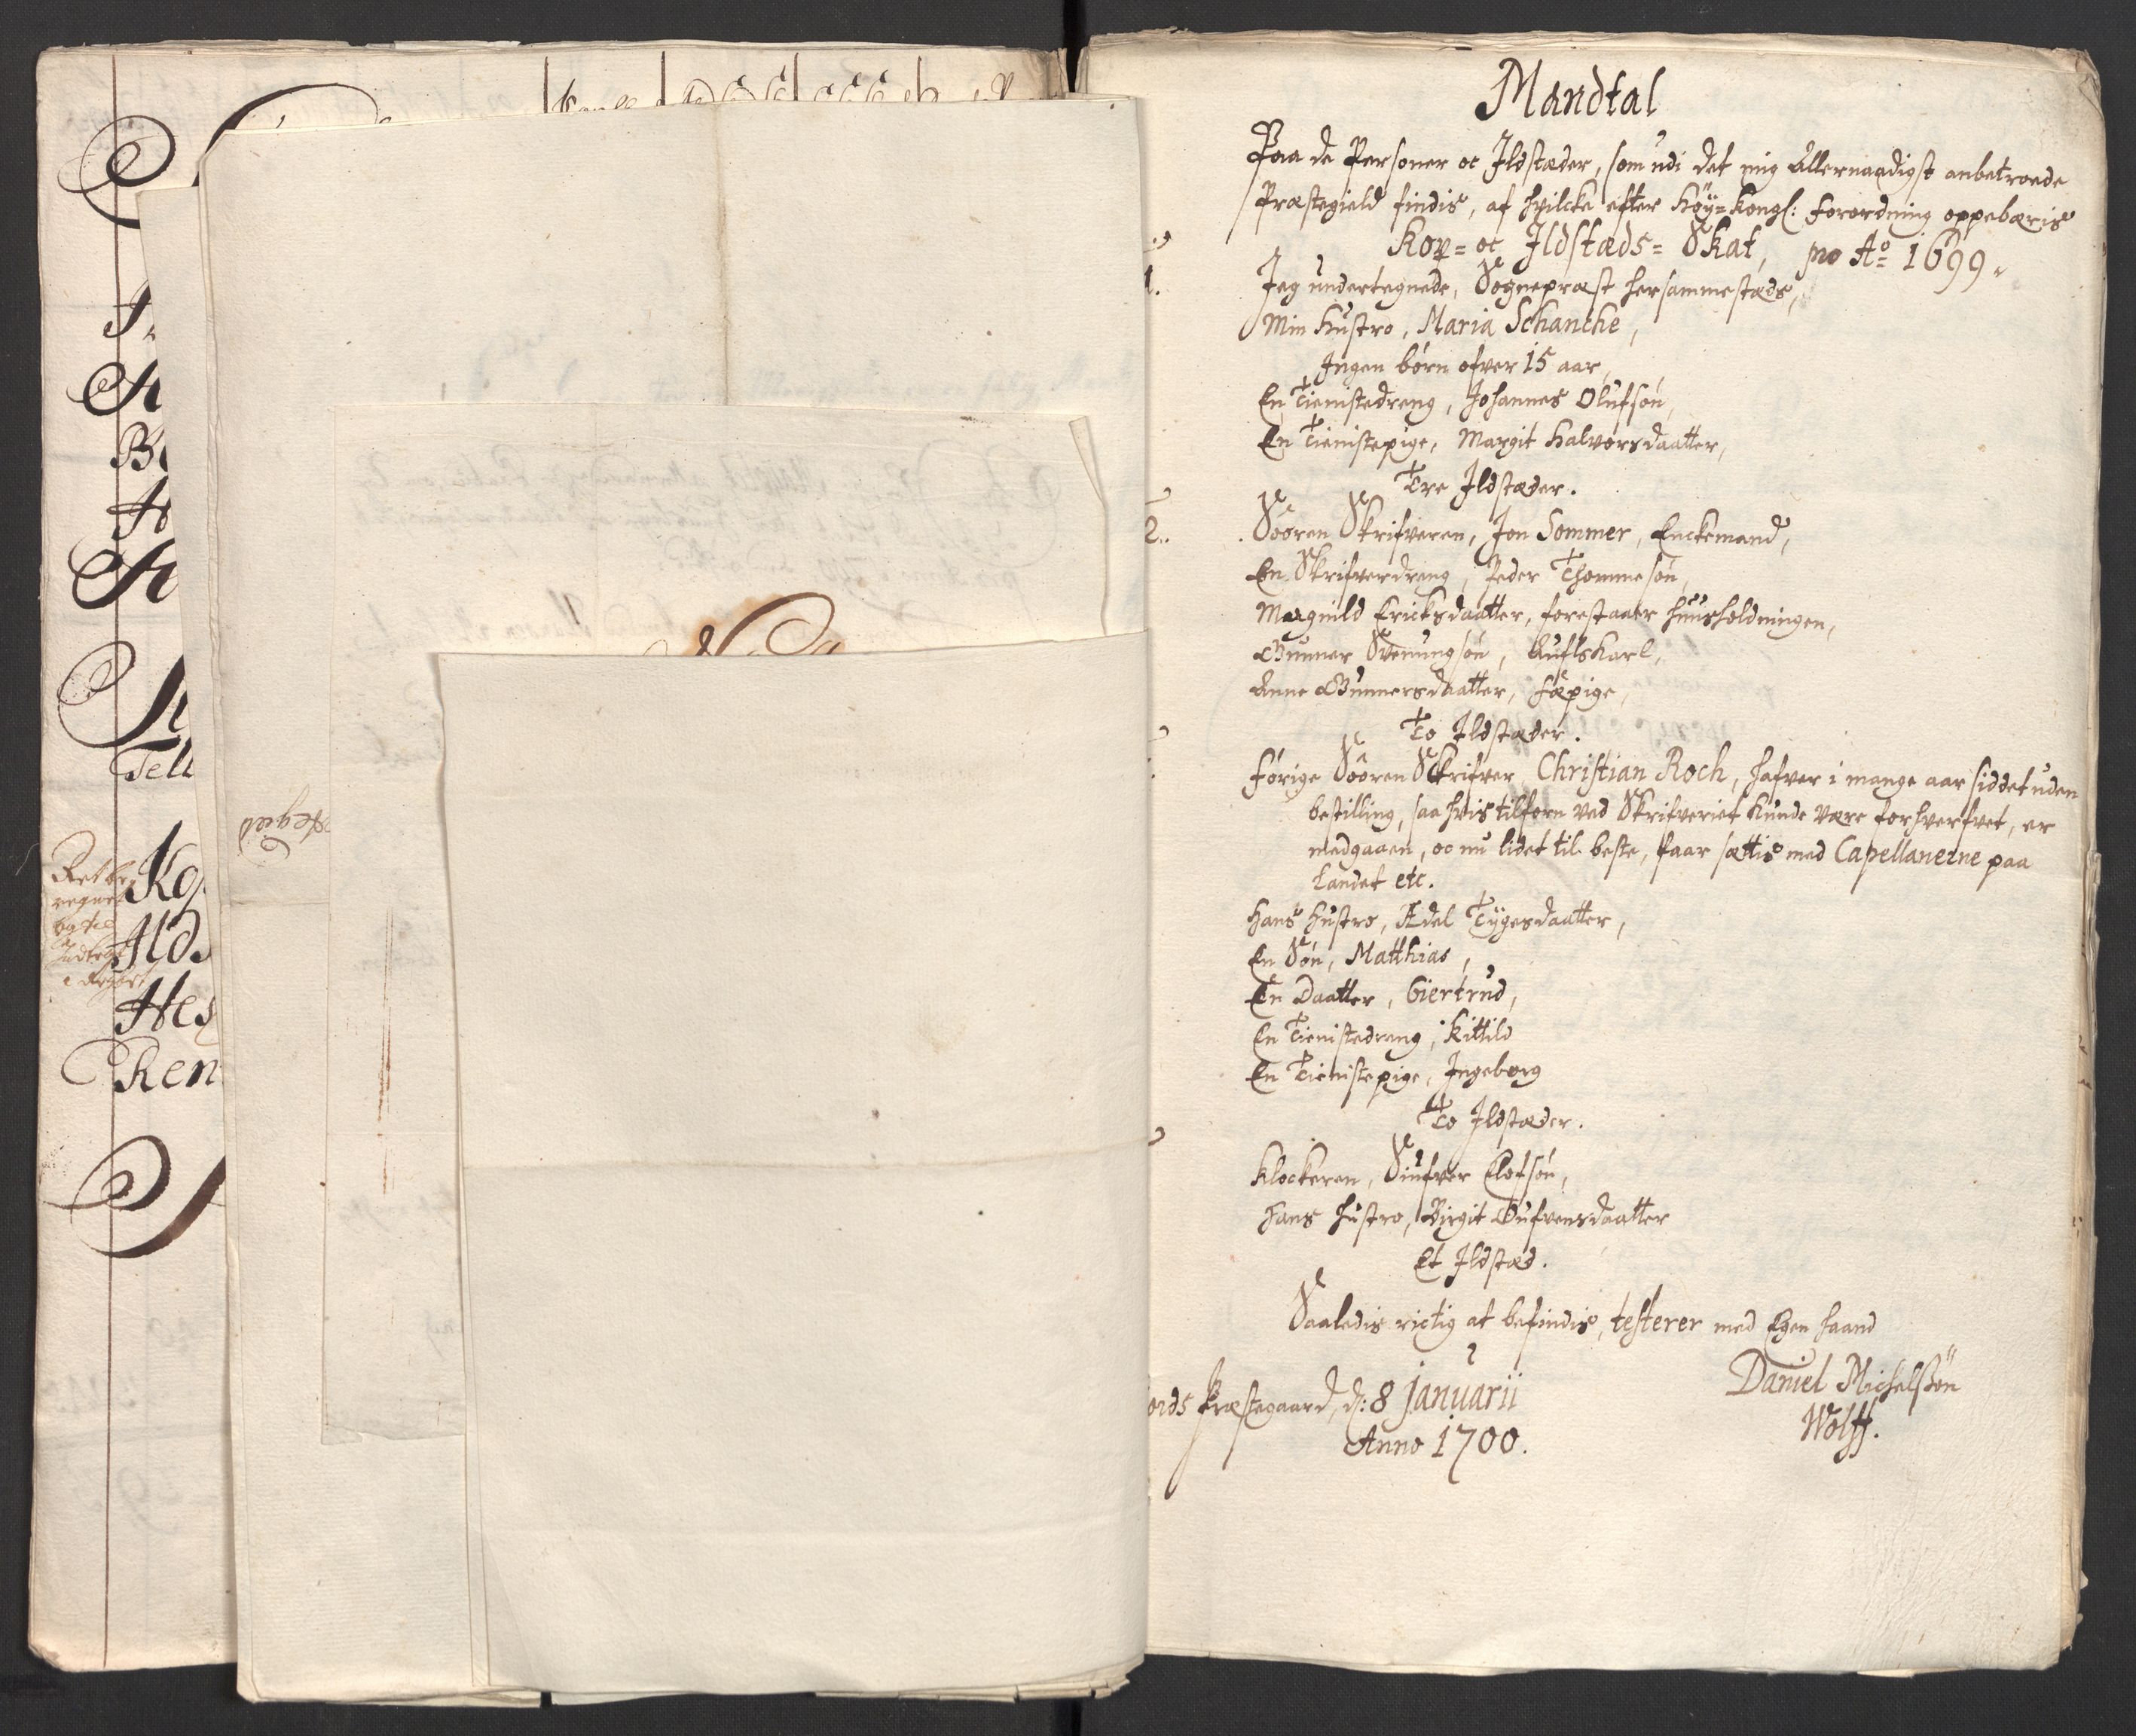 Tell
Ret be-
regnet
og til
Kop
Ilds
Hes
Ren
Mandtal
Paa de Personer oc Ildstæder, som udi det mig Allernaadigst anbetroede
Præstegield findis, af hvilcke efter Høy=Kongl: forordning oppebæris
Kop= oc Ildstæds= Skat, pro Aº 1699.
1. Jeg undertegnede, Sognepræst hersammestæds,
Min Hustro, Maria Schanche,
Ingen børn ofver 15 aar,
En Tienistedreng, Johannes Olufsøn,
En Tienistepige, Margit Halvorsdaatter,
Tre Ildstæder.
2. Sooren Skrifveren, Jon Sommer, Enckemand,
En Skrifverdreng, Peder Thommesøn,
Magnild Ericksdaatter, forestaaer huusholdningen,
Gunner Svenungsøn, Aufls Karl,
Anne Gunnersdaatter, fæpige,
To Ildstæder.
Førige Sooren Skrifver, Christian Roch, hafver i mange aar siddet uden
bestilling, saa hvis tilforn ved Skrifveriet kunde være forhverfvet, er
medgaaen, oc nu lidet til beste, faar sættis med Capellanerne paa
Landet etc.
Hans Hustro, Adel Tygesdaatter,
En Søn, Matthias,
En Daatter, Giertrud,
En Tienistedreng, Kittild
En Tienistepige, Ingeborg
To Ildstæder.
Klockeren, Siufver Olofsøn,
Hans Hustro, Birgit Tufvensdaatter
Et Ildstæd.
Saaledis rictig at befindis, testerer med Egen haand
ords Præstegaard, d: 8 Januarii
Anno 1700.
Daniel Michelssøn
Wolff.